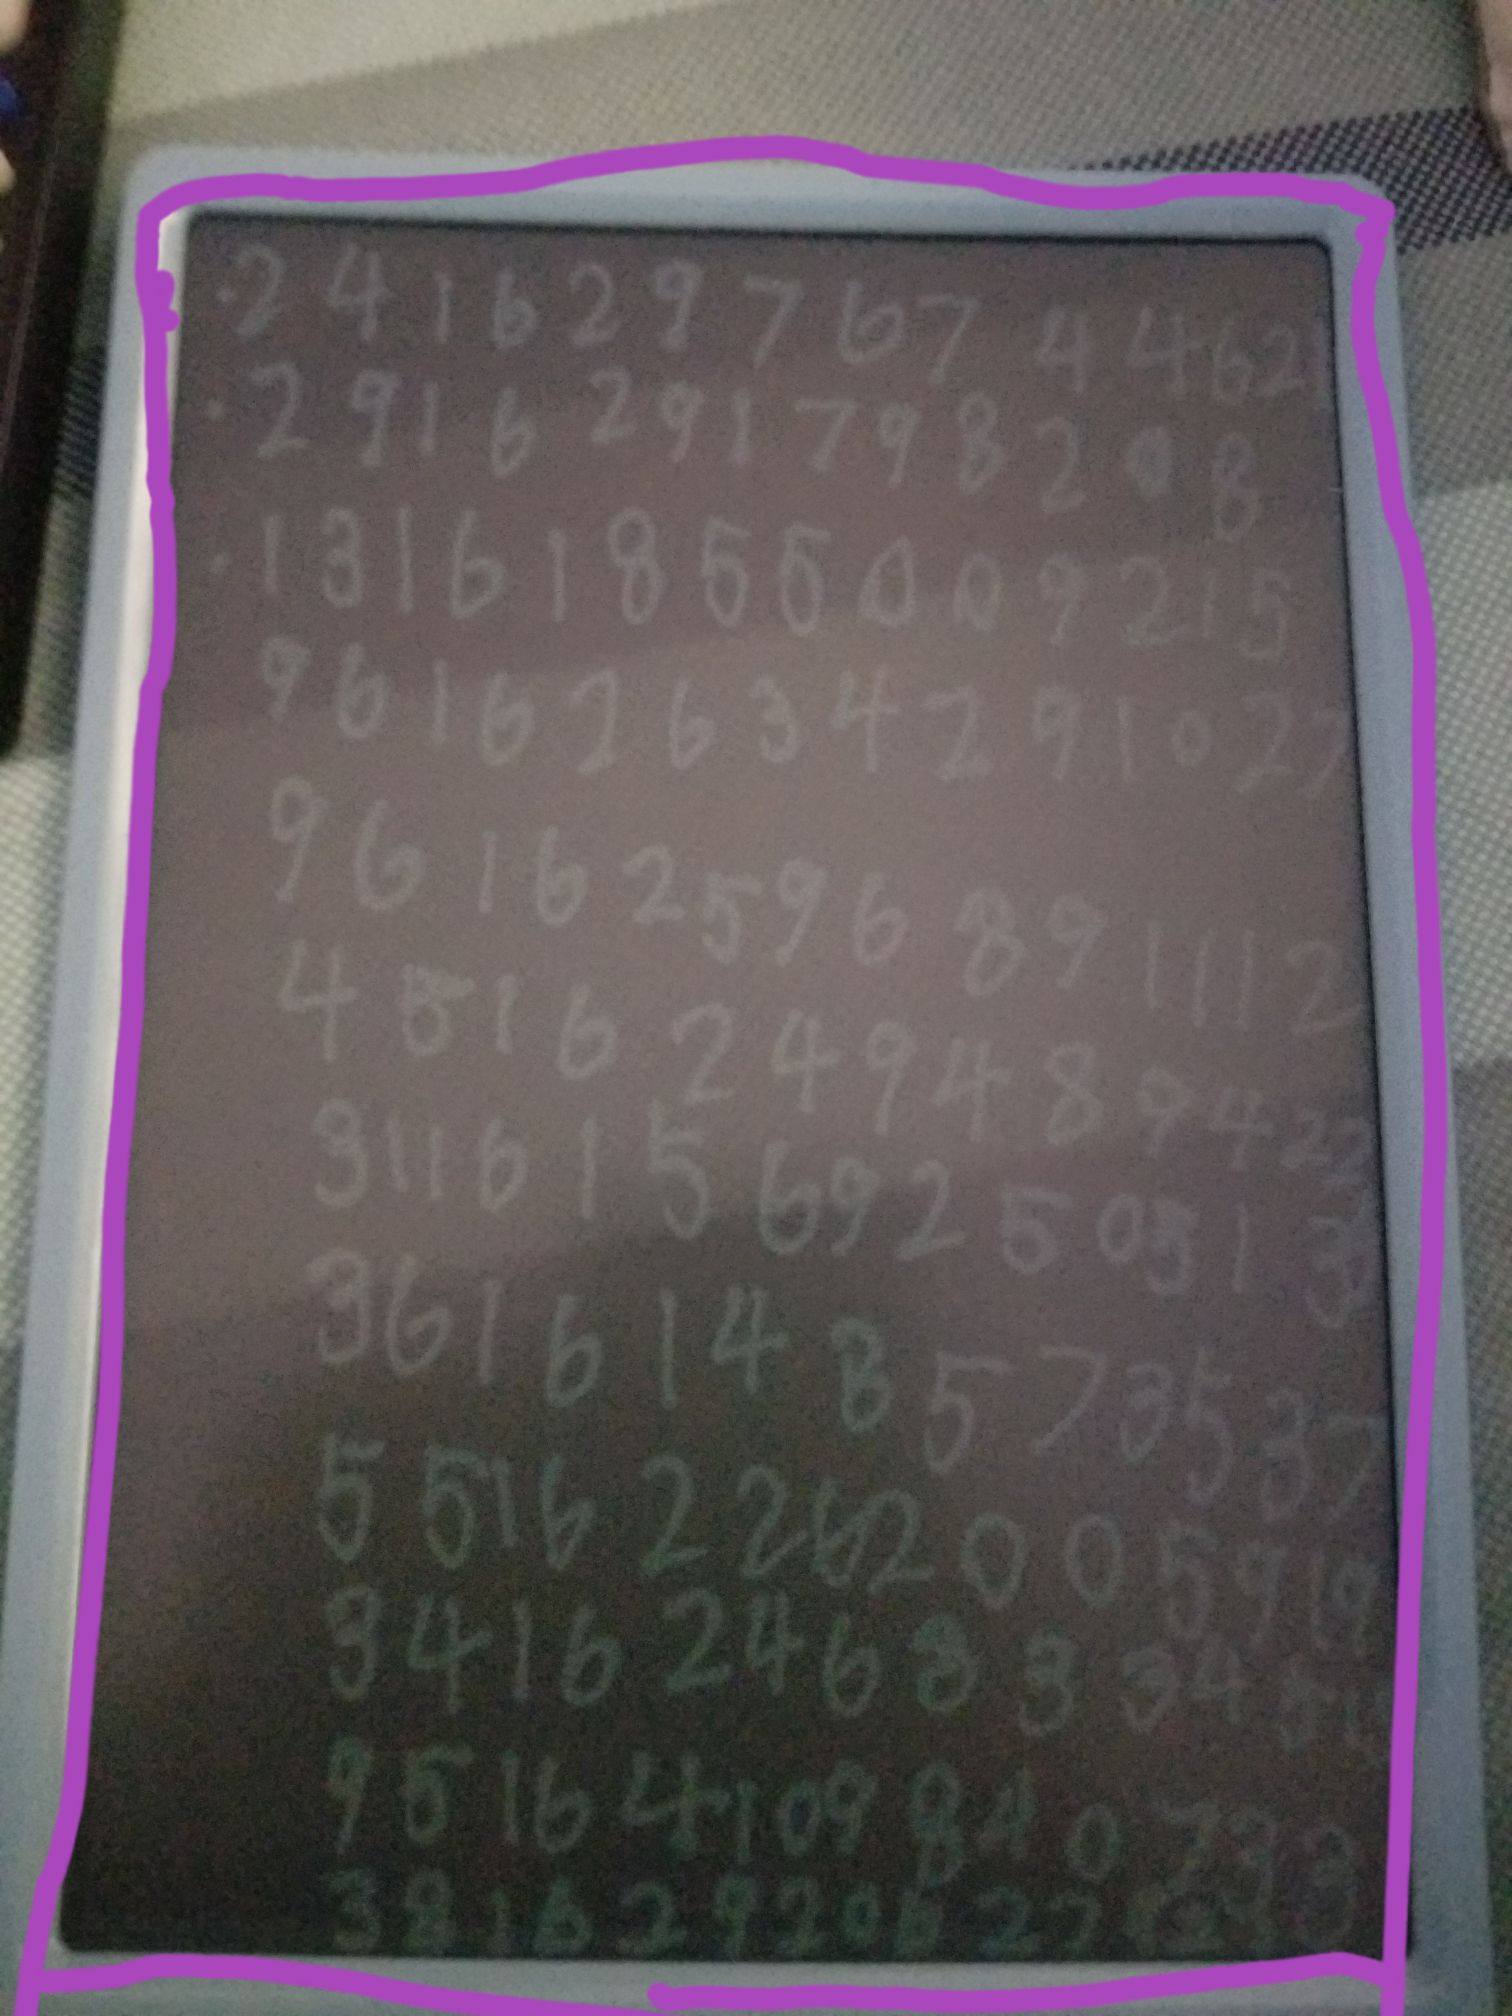 2 4 1 6 2 9 7 6 7 4 4 6 2 1
2 9 1 6 2 9 1 7 9 8 2 0 8
1 3 1 6 1 8 5 5 0 0 9 2 1 5
9 6 1 6 2 6 3 4 2 9 1 0 2 7
9 6 1 6 2 5 9 6 8 9 1 1 1 2
4 5 1 6 2 4 9 4 8 9 4 2 2
3 1 1 6 1 5 6 9 2 5 0 5 1 3
3 6 1 6 1 4 8 5 7 3 5 3 7
5 5 1 6 2 2 6 2 0 0 5 9 1 9
3 4 1 6 2 4 6 8 3 3 4 5 1
9 5 1 6 4 1 0 9 8 4 0 7 3 3
3 8 1 6 2 9 2 0 6 2 7